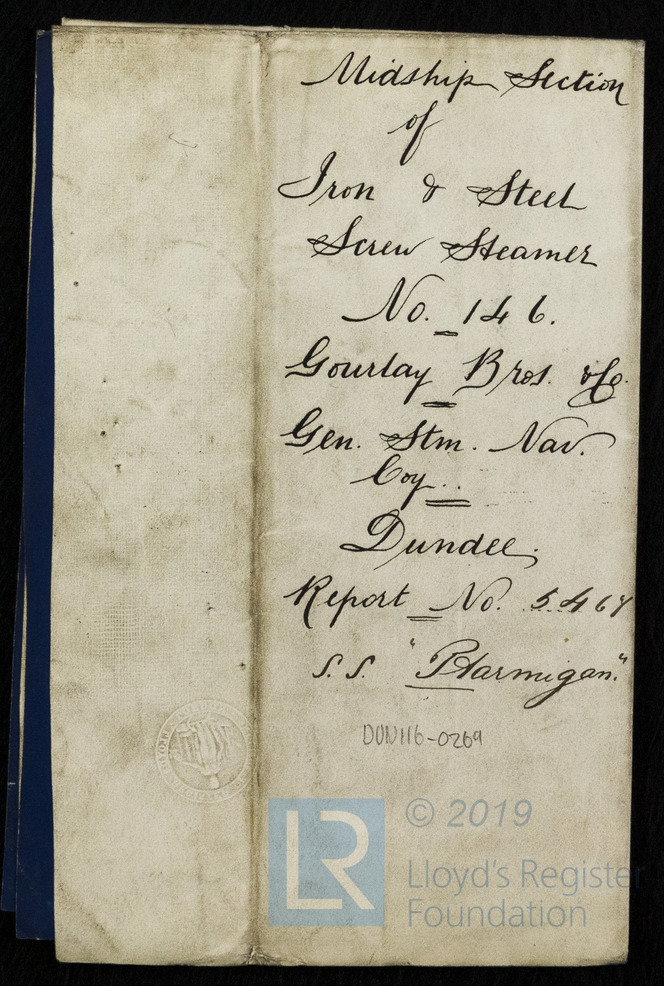 Midship Section
of
Iron & Steel
Screw Steamer
No. 146.
Gourlay Bros. & Co.
Gen. Stm. Nav.
Coy..
Dundee.
Report No.
S.S. "Ptarmigan."
DUN116-0269
LR
© 2019
Lloyd's Register
Foundation